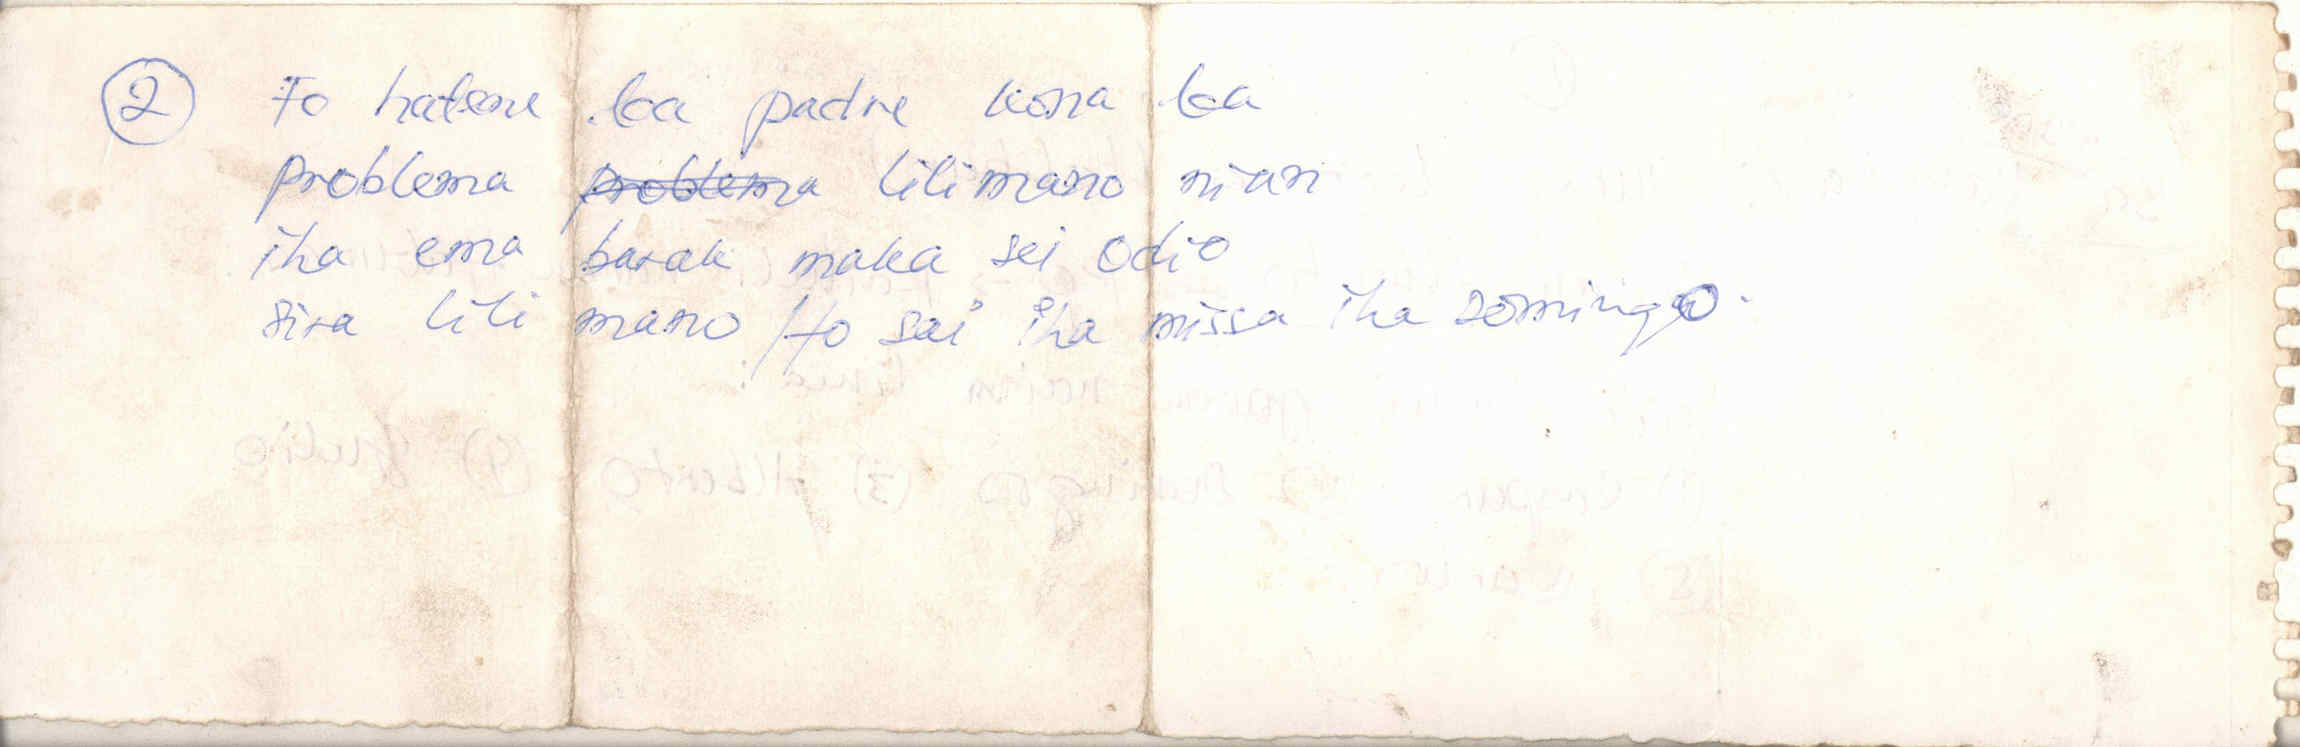 ② Fo hatene ba padre kona ba
problema problema lilimano nian
iha ema barak maka sei odio
sira lili mano / fo sai iha missa iha domingo.